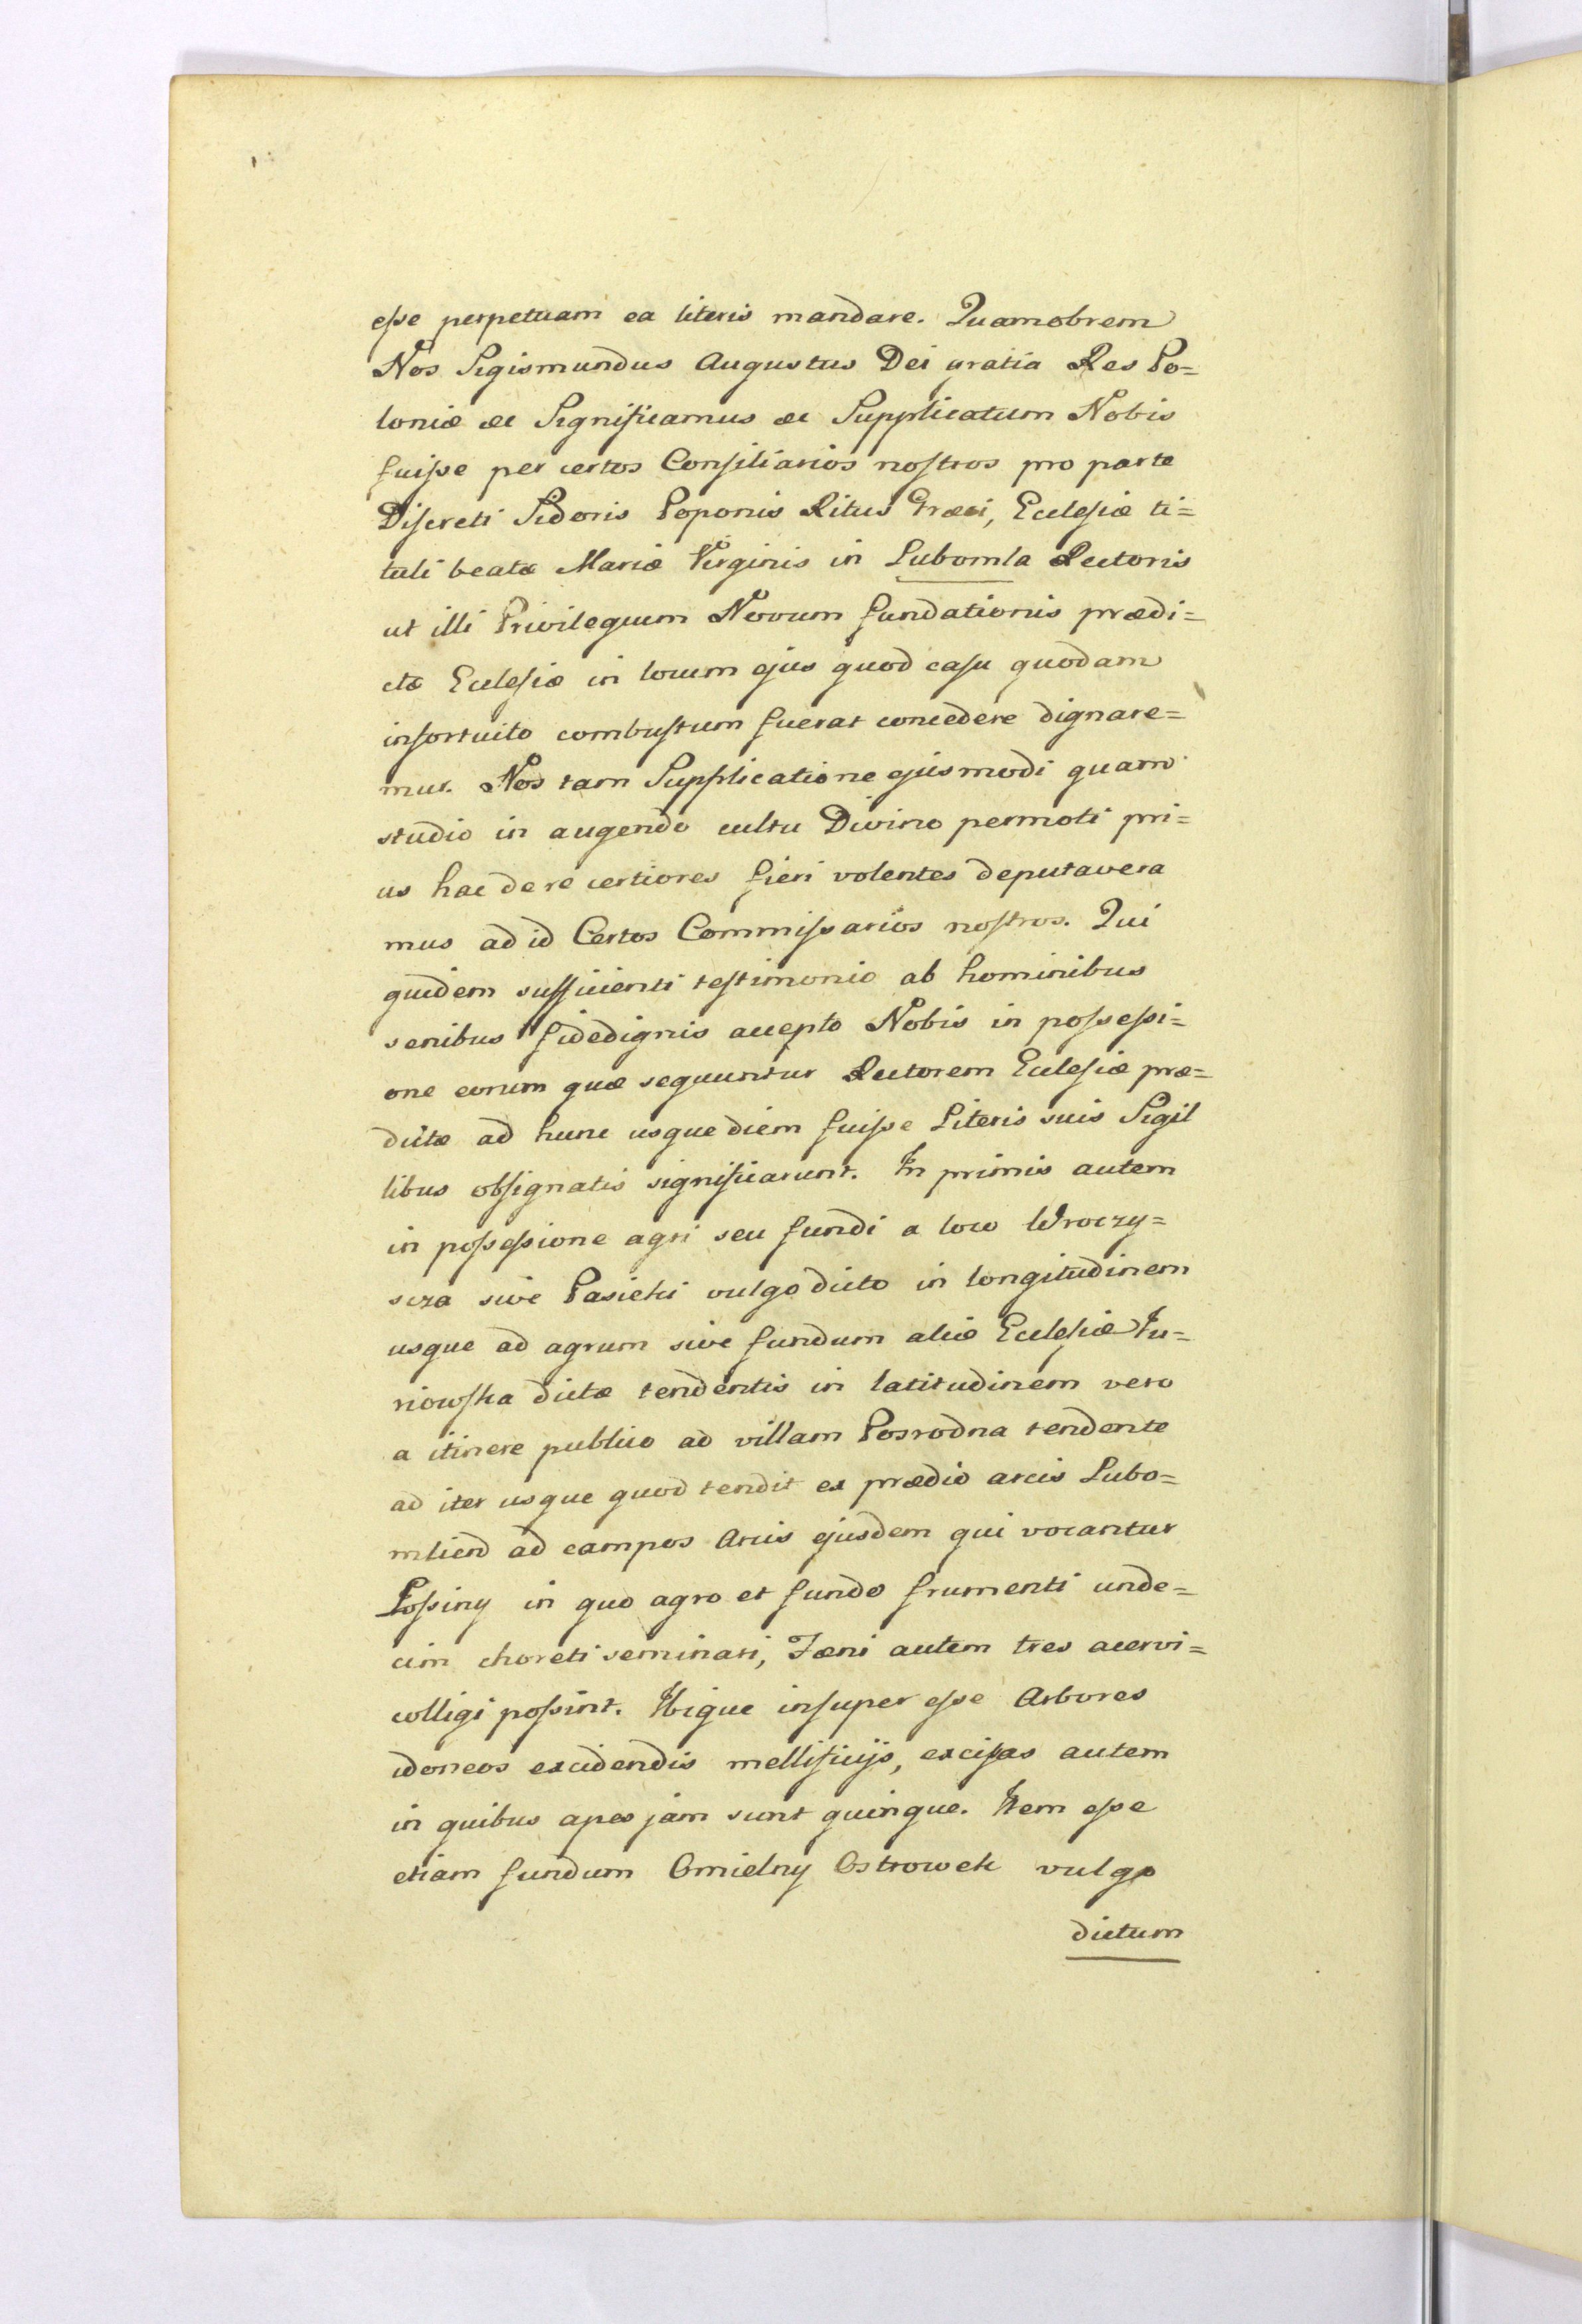 esse perpetuam ea literis mandare. Quamobrem
Nos Sigismundus Augustus Dei gratia Rex Po=
loniæ &c Significamus &c Supplicatum Nobis
fuisse per certos Consiliarios nostros pro parte
Discreti Sidoris Poponis Ritus Græci, Eclesiæ ti=
tuli beatæ Mariæ Virginis in Lubomla Rectoris
ut illi Privilegium Novum fundationis prædi=
ctæ Eclesiæ in locum ejus quod casu quodam
infortuito combustum fuerat concedere dignare=
mur. Nos tam Supplicatione ejusmodi quam
studio in augendo cultu Divino permoti pri=
us hac de re certiores fieri volentes deputavera
mus ad id Certos Commissarios nostros. Qui
quidem sufficienti testimonio ab hominibus
senibus fidedignis accepto Nobis in possessi=
one eorum quæ sequuntur Rectorem Eclesiæ præ=
dictæ ad hunc usque diem fuisse Literis suis Sigil
libus obsignatis significarunt. In primis autem
in possessione agri seu fundi a loco Uroczy=
scza sive Pasieki vulgo dicto in longitudinem
usque ad agrum sive fundum aliæ Eclesiæ Iu=
riowska dictæ tendentis in latitudinem vero
a itinere publico ad villam Posrodna tendente
ad iter usque quod tendit ex prædio arcis Lubo=
mlien ad campos Arcis ejusdem qui vocantur
Lossiny in quo agro et fundo frumenti unde=
cim choreti seminari, Fæni autem tres acervi=
colligi possint. Ibique insuper esse Arbores
idoneos excidendis mellificijs, excisas autem
in quibus apes jam sunt quinque. Item esse
etiam fundum Omielny Ostrowek vulgo
dictum